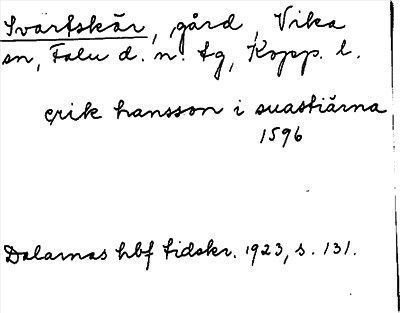 Svartskär, gård, Vika
sn, Falu d. n. tg, Kopp. l.
erik hansson i suastiärna
1596
Dalarnas hbf tidskr. 1923, s. 131.